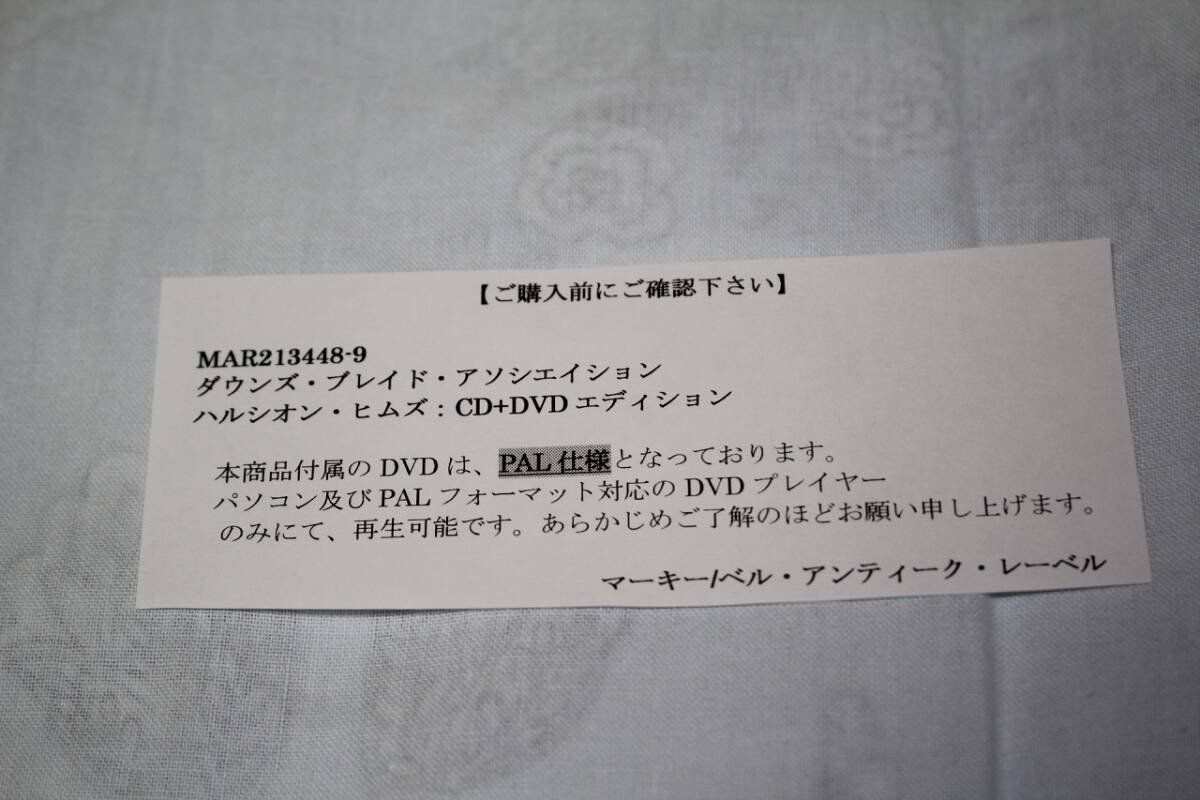 【ご購入前にご確認下さい】
MAR213448-9
ダウンズ・ブレイド・アソシエイション
ハルシオン・ヒムズ：CD+DVDエディション
本商品付属のDVDは、PAL仕様となっております。
パソコン及びPALフォーマット対応のDVDプレイヤー
のみにて、再生可能です。あらかじめご了解のほどお願い申し上げます。
マーキー/ベル・アンティーク・レーベル